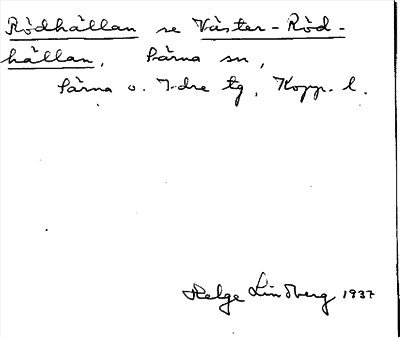 Rödhällan se Väster-Röd-
hällan, Särna sn,
Särna o. Idre tg, Kopp. l.
Helge Lindberg 1937